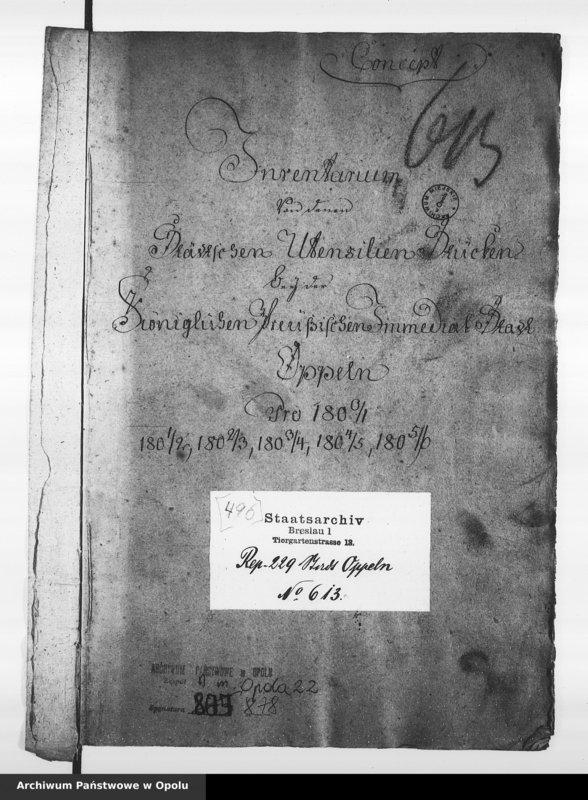 Concept
613
Inventarium
Von denen
Städtschen Utensilien Stücken
bey der
Königlichen Preußischen Immediat Stadt
Oppeln
Pro 180 0/1
180 1/2, 180 2/3, 180 3/4, 180 4/5, 180 5/6
[496]
Staatsarchiv
Breslau 1
Tiergartenstrasse 13.
Rep. 229 Stadt Oppeln
No 613.
ARCHIWUM PAŃSTWOWE w OPOLU
Zespół A. m. Opola 22
Sygnatura 878
Archiwum Państwowe w Opolu